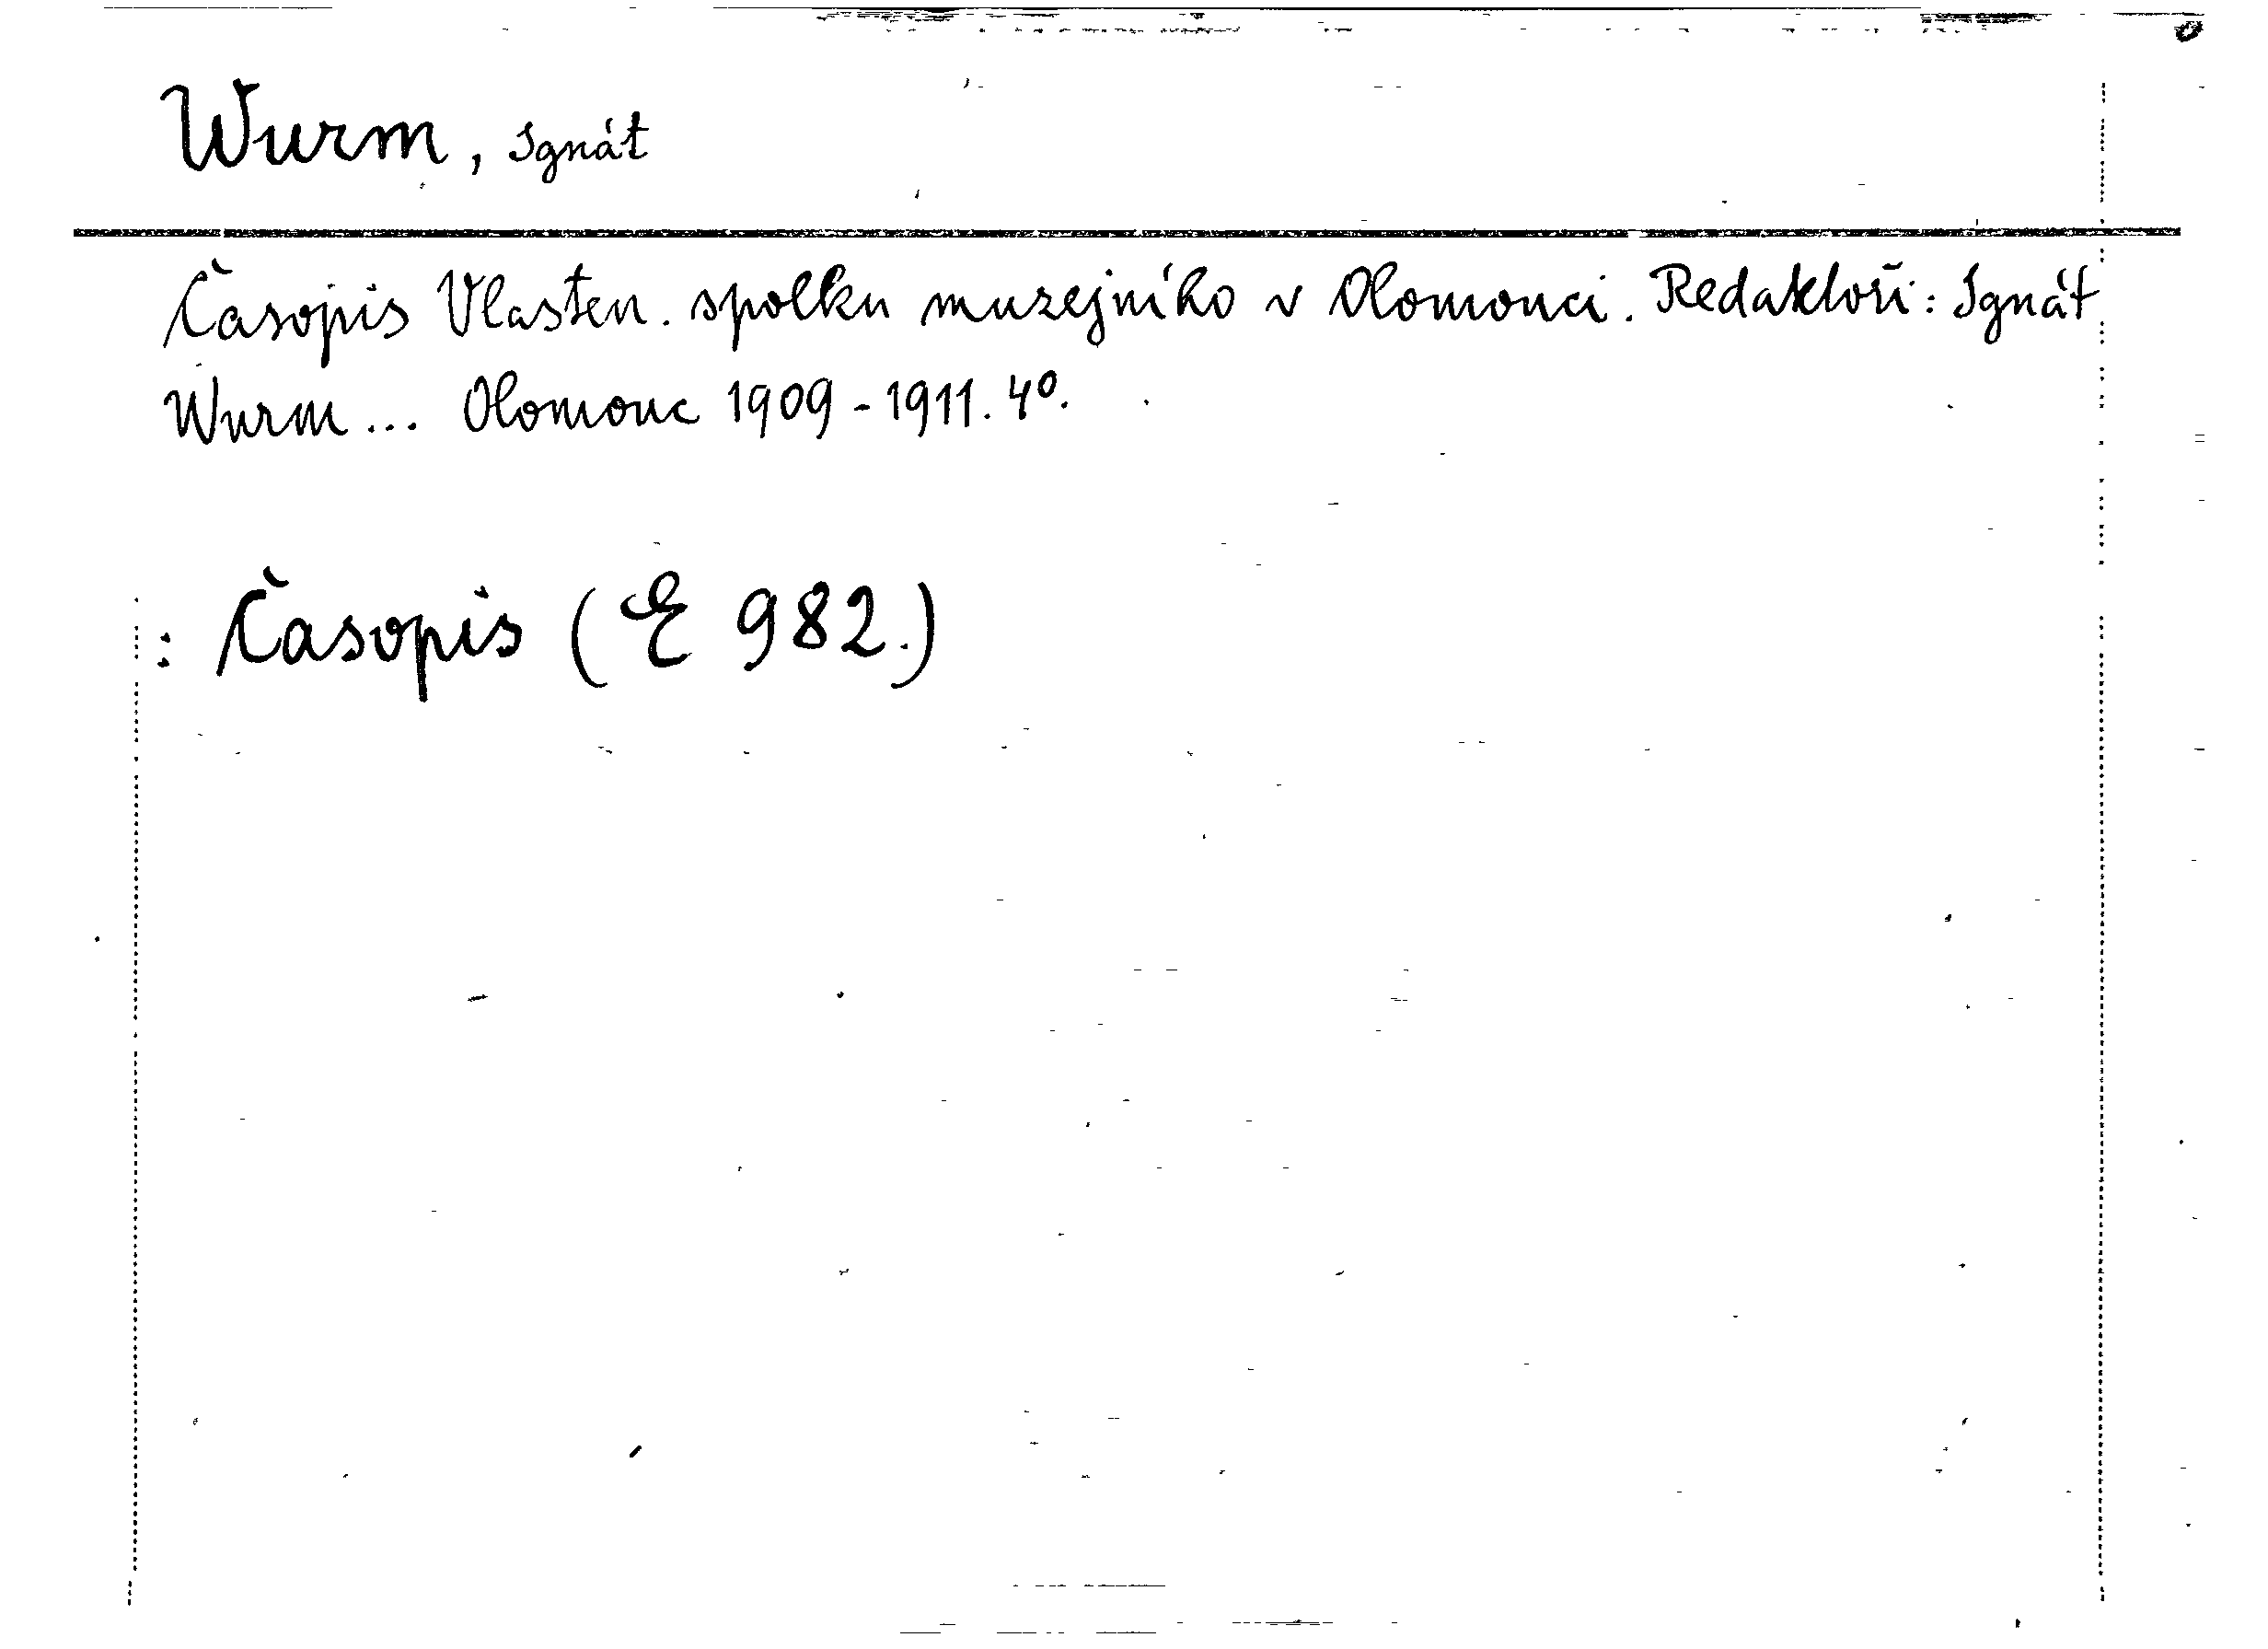 Wurm, Ignát
Časopis Vlasten. spolku muzejního v Olomouci. Redaktoři: Ignát
Wurm... Olomouc 1909-1911. 4°.
: Časopis (E 982.)